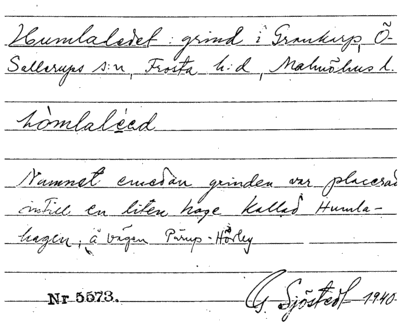 Humlaledet: grind i Grankarp, Ö-
Sallerups s:n, Frosta h:d, Malmöhus l.
hòmlaléed
Namnet emedan grinden var placerad
intill en liten hage kallad Humla-
hagen, å vägen Pärup-Hörby
Nr 5573.
G. Sjöstedt 1940